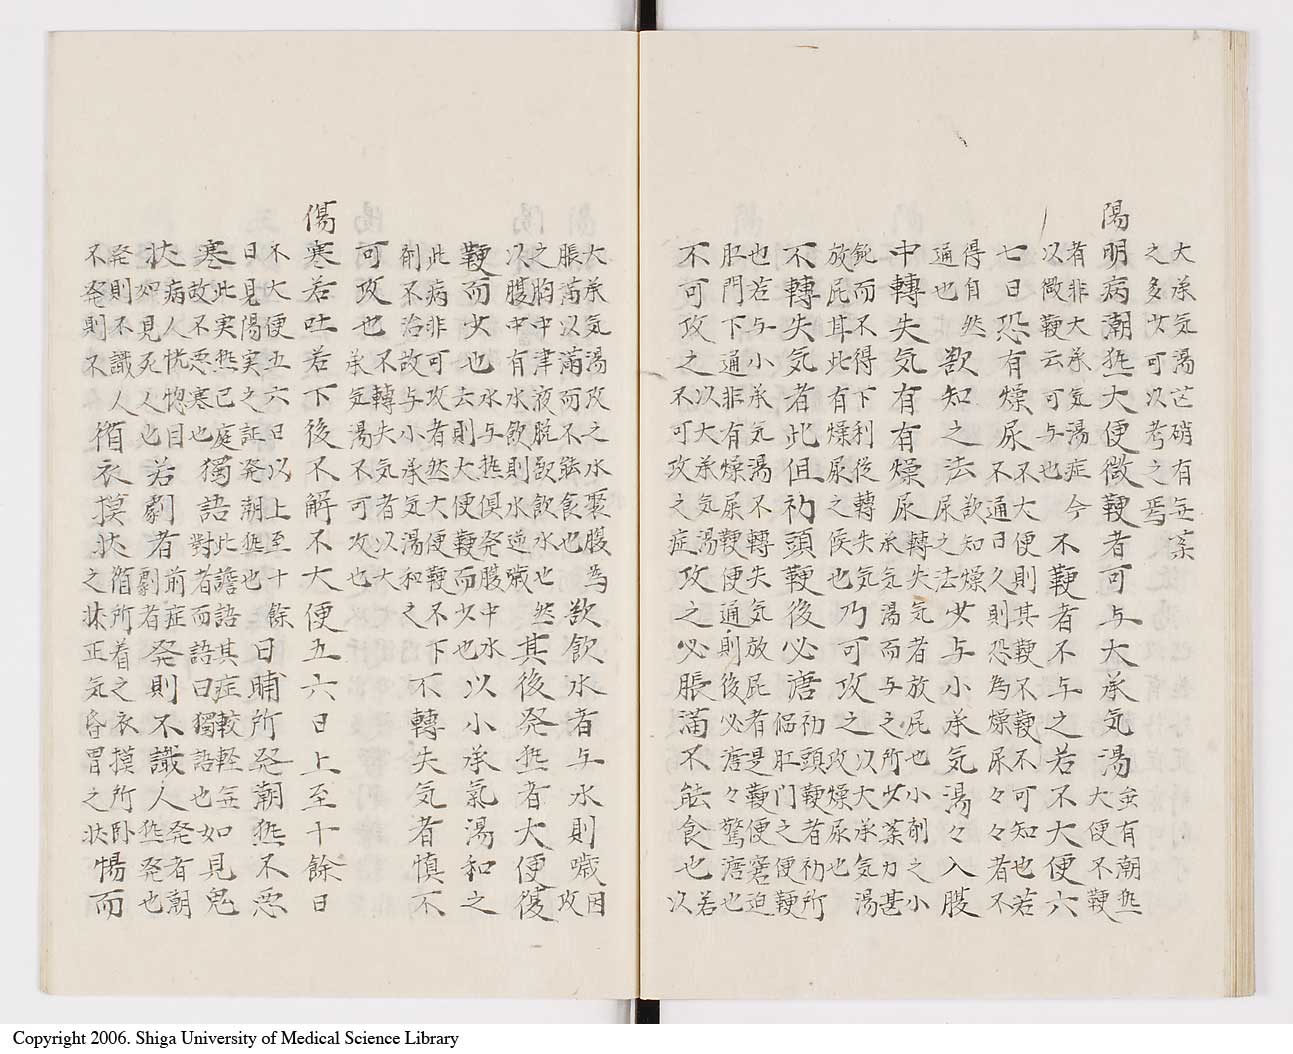 大承気湯芒硝有無薬
之多少可以考之焉
陽明病潮熱大便微鞕者可与大承気湯虽有潮熱大便不鞕
者非大承気湯症今以微鞕云可与也不鞕者不与之若不大便六
七日恐有燥尿不大便則其鞕不鞕不可知也若不通日久則恐為燥尿々々者不
得自然通也欲知之法欲知燥尿之法少与小承気湯々入腹
中轉失気有有燥尿轉失気者放屁也小剤之小承気湯而与之所少薬力甚
鈍而不得下利従轉失気放屁耳此有燥尿之候也乃可攻之以大承気湯攻燥尿也
不轉失気者此但初頭鞕後必溏初頭鞕者初所侶肛門之便鞕
也若与小承気湯不轉失気放屁者是鞕便窘迫肛門下通非有燥尿鞕便通則後必溏々驚溏也
不可攻之以大承気湯不可攻之症攻之必脹滿不能食也若以
大承気湯攻之水聚腹為脹滿以滿而不能食也欲飲水者与水則噦因攻
之胸中津液脱欲飲水也然以腹中有水飲則水逆噦其後発熱者大便復
鞕而少也水与熱倶発腹中水云則大便鞕而少也以小承氣湯和之
此病非可攻者然大便鞕不下剤不治故与小承気湯和之不轉失気者慎不
可攻也不轉失気者以大承気湯不可攻也
傷寒若吐若下後不解不大便五六日上至十餘日
不大便五六日以上至十餘日見陽実之証発潮熱也日晡所発潮熱不悪
寒此実熱已庭故不悪寒也獨語此譫語其症較軽無對者而語曰獨語也如見鬼
状病人恍惚目如見死人也若劇者前症劇者発則不識人発者潮熱発也
発則不識人不発則不循衣摸牀循所着之衣摸所卧之牀正気昏冒之状惕而
Copyright 2006. Shiga University of Medical Science Library